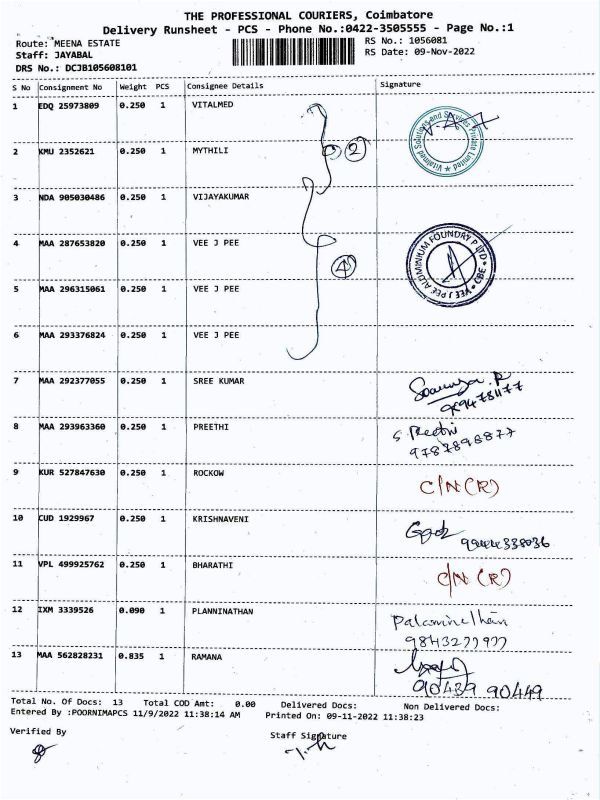 THE PROFESSIONAL COURIERS, Coimbatore
Delivery Runsheet - PCS - Phone No.:0422-3505555 - Page No.:1
Route: MEENA ESTATE RS No.: 1056081
Staff: JAYABAL RS Date: 09-Nov-2022
DRS No.: DCJB105608101
S No Consignment No Weight PCS Consignee Details Signature
1 EDQ 25973809 0.250 1 VITALMED
Vitalmed Solutions and Services Private Limited
2 KMU 2352621 0.250 1 MYTHILI 2
3 NDA 905030486 0.250 1 VIJAYAKUMAR
4 MAA 287653820 0.250 1 VEE J PEE 4
VEE J PEE ALUMINIUM FOUNDRY P LTD CBE
5 MAA 296315061 0.250 1 VEE J PEE
6 MAA 293376824 0.250 1 VEE J PEE
7 MAA 292377055 0.250 1 SREE KUMAR
8 MAA 293963360 0.250 1 PREETHI S. Preethi
9787898877
9 KUR 527847630 0.250 1 ROCKOW C/N (R)
10 CUD 1929967 0.250 1 KRISHNAVENI
11 VPL 499925762 0.250 1 BHARATHI C/N (R)
12 IXM 3339526 0.090 1 PLANNINATHAN
13 MAA 562828231 0.835 1 RAMANA
90439 90449
Total No. Of Docs: 13 Total COD Amt: 0.00 Delivered Docs: Non Delivered Docs:
Entered By :POORNIMAPCS 11/9/2022 11:38:14 AM Printed On: 09-11-2022 11:38:23
Verified By Staff Signature